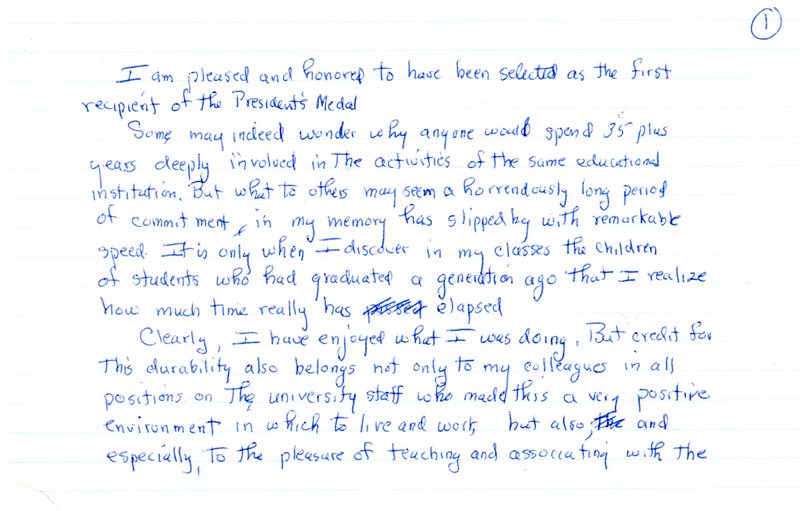 1
I am pleased and honored to have been selected as the first
recipient of the President's Medal
Some may indeed wonder why anyone would spend 35 plus
years deeply involved in The activities of the same educational
institution. But what to others may seem a horrendously long period
of commitment, in my memory has slipped by with remarkable
speed. It is only when I discover in my classes the children
of students who had graduated a generation ago that I realize
how much time really has passed elapsed
Clearly, I have enjoyed what I was doing. But credit for
This durability also belongs not only to my colleagues in all
positions on The university staff who made this a very positive
environment in which to live and work, but also, the and
especially, to the pleasure of teaching and associating with the